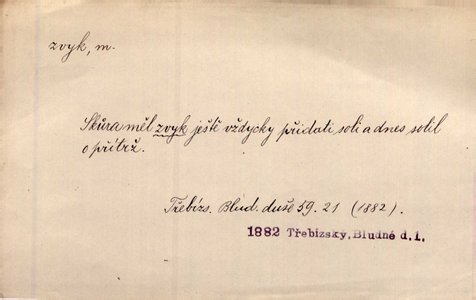 zvyk, m.
Skůra měl zvyk ještě vždycky přidati soli a dnes solil
o přítrž.
Třebízs. Blud. duše 59. 21 (1882).
1882 Třebízský, Bludné d. i.